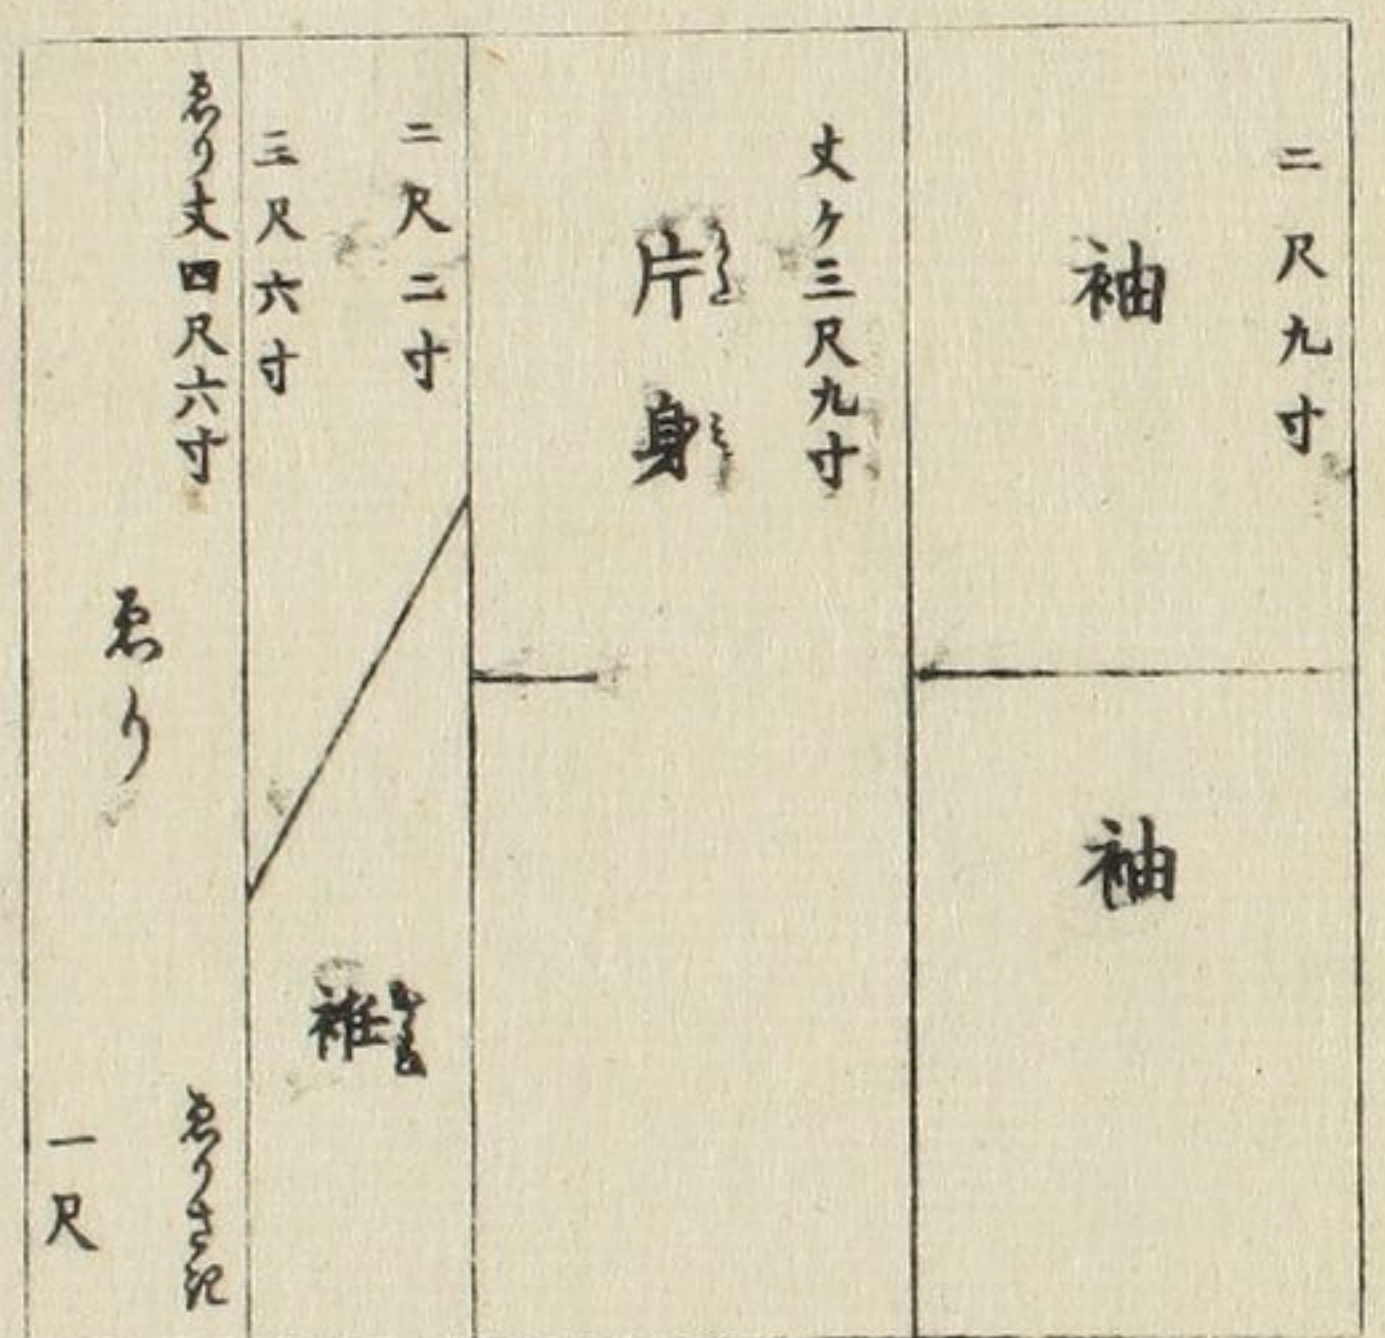 二尺九寸
袖
袖
丈ケ三尺九寸
片身
二尺二寸
三尺六寸
袵
ゑり丈四尺六寸
ゑり
ゑりさ記
一尺